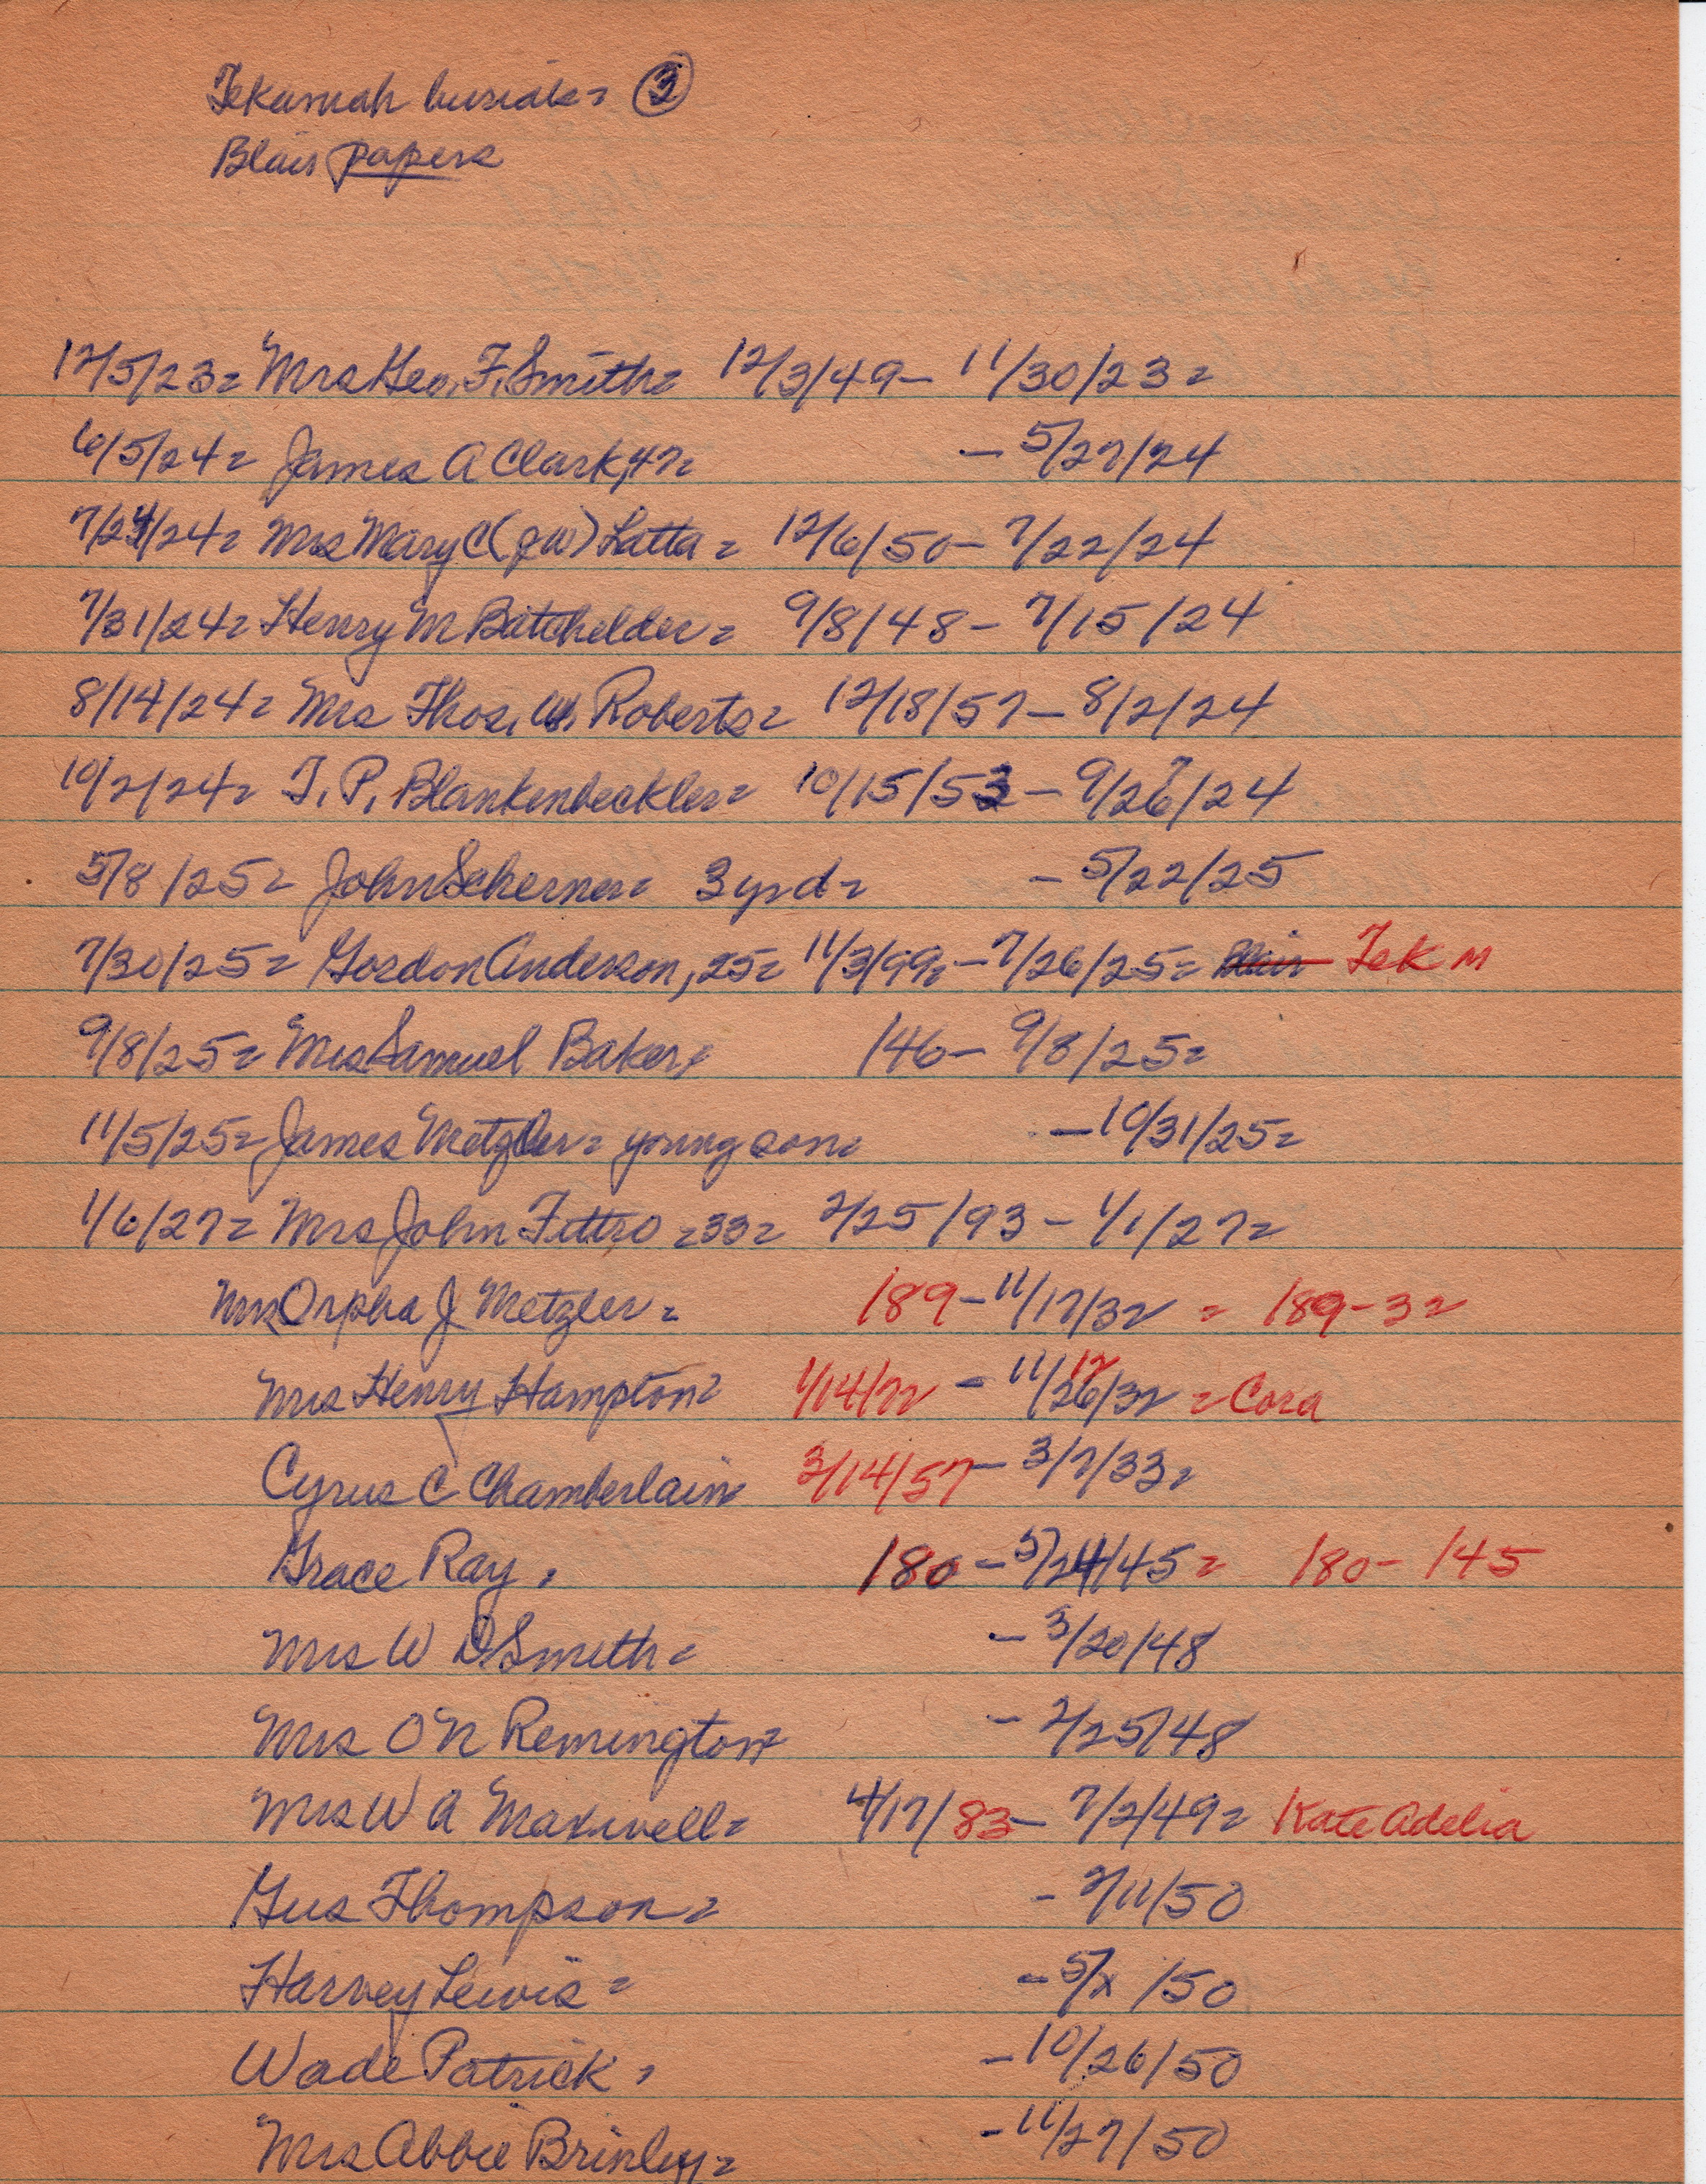 Tekamah burials = 3
Blair papers
12/5/23 = Mrs Geo. F. Smith = 12/3/49 - 11/30/23 =
6/5/24 = James A Clark, 47 = - 5/27/24
7/24/24 = Mrs Mary C (JW) Latta = 12/6/50 - 7/22/24
7/31/24 = Henry M Batchelder = 9/8/48 - 7/15/24
8/14/24 = Mrs Thos. W. Roberts = 12/18/57 - 8/2/24
10/2/24 = T. P. Blankenbeckler = 10/15/53 - 9/26/24
5/8/25 = John Scherner = 3 yrd = - 5/22/25
7/30/25 = Gordon Anderson, 25 = 11/3/99 = - 7/26/25 = Blair Tek M
9/8/25 = Mrs Samuel Baker = /46 - 9/8/25 =
11/5/25 = James Metzler = young son = - 10/31/25 =
1/6/27 = Mrs John Fittro = 33 = 2/25/93 - 1/1/27 =
Mrs Orpha J Metzler = 189 - 11/17/32 = 189-32
Mrs Henry Hampton = 1/14/72 - 11/26/32 12 = Cora
Cyrus C Chamberlain 3/14/57 - 3/7/33 =
Grace Ray, 180 - 5/24/45 = 180 - 145
Mrs W D Smith = - 3/20/48
Mrs O N Remington = - 2/25/48
Mrs W A Maxwell = 4/17/83 - 7/2/49 = Kate Adelia
Gus Thompson = - 2/11/50
Harvey Lewis = - 5/x /50
Wade Patrick, - 10/26/50
Mrs Abbie Brinley = - 11/27/50